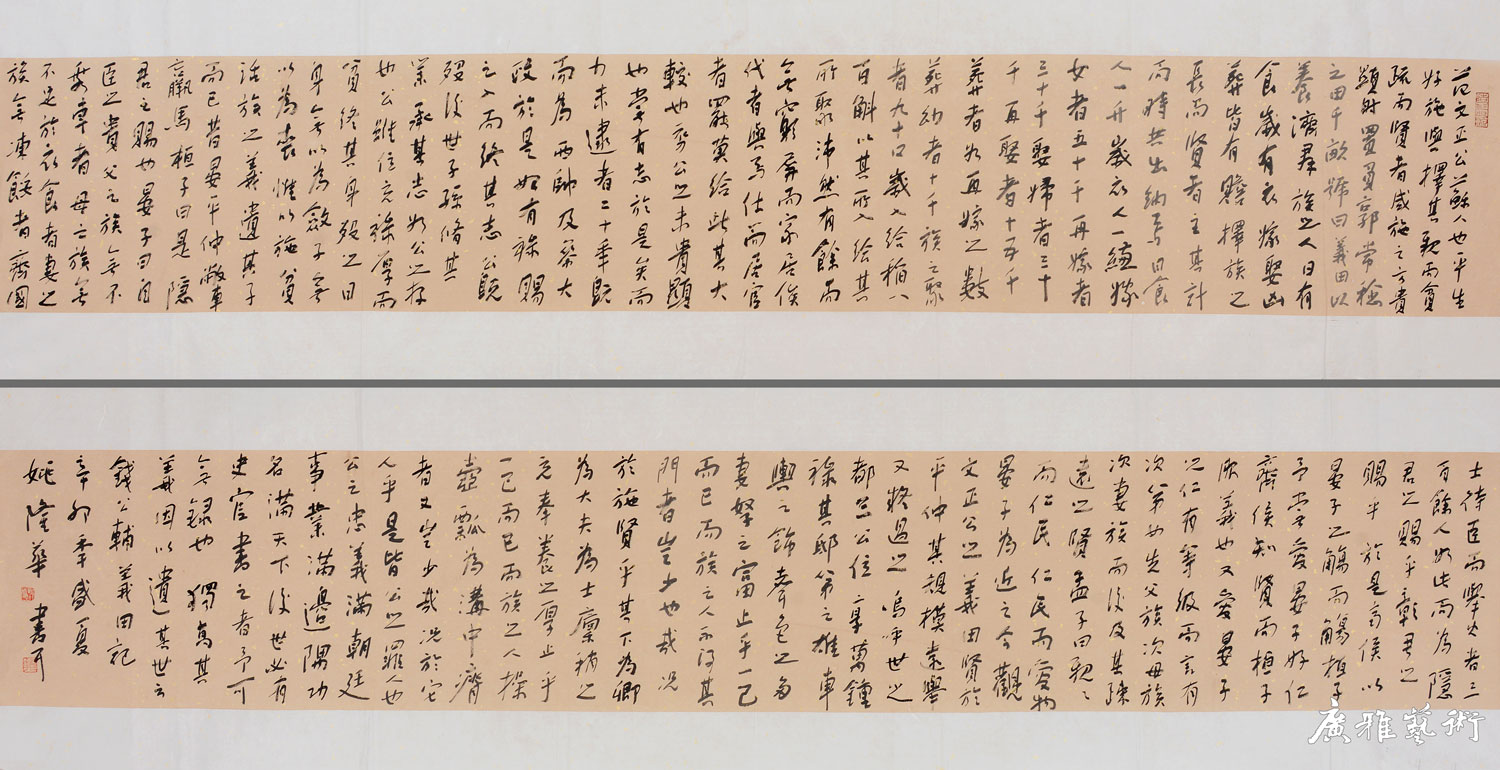 范文正公蘇人也平生
好施與擇其親而貧
疏而賢者咸施之方貴
顯時置負郭常稔
之田千畝號曰義田以
養濟群族之人日有
食歲有衣嫁娶凶
葬皆有贍擇族之
長而賢者主其計
而時共出納焉日食
人一升歲衣人一縑嫁
女者五十千再嫁者
三十千娶婦者三十
千再娶者十五千
葬者如再嫁之數
葬幼者十千族之聚
者九十口歲入給稻八
百斛以其所入給其
所聚沛然有餘而
無窮屏而家居俟
代者與焉仕而居官
者罷莫給此其大
較也初公之未貴顯
也嘗有志於是矣而
力未逮者二十年既
而為西帥及參大
政於是始有祿賜
之入而終其志公既
歿後世子孫脩其
業承其志如公之存
也公雖位充祿厚而
貧終其身歿之日
身無以為斂子無
以為喪惟以施貧
活族之義遺其子
而已昔晏平仲敝車
羸馬桓子曰是隱
君之賜也晏子曰自
臣之貴父之族無不
乘車者母之族無
不足於衣食者妻之
族無凍餒者齊國
士待臣而舉火者三
百餘人如此而為隱
君之賜乎彰君之
賜乎於是齊侯以
晏子之觴而觴桓子
予嘗愛晏子好仁
齊侯知賢而桓子
服義也又愛晏子
之仁有等級而言有
次第也先父族次母族
次妻族而後及其疎
遠之賢孟子曰親〻
而仁民仁民而愛物
晏子為近之今觀
文正公之義田賢於
平仲其規模遠舉
又將過之嗚呼世之
都三公位享萬鍾
祿其邸第之雄車
輿之飾聲色之多
妻孥之富止乎一己
而已而族之人不得其
門者豈少也哉況
於施賢乎其下為卿
為大夫為士廩稍之
充奉養之厚止乎
一己而已而族之人操
壺瓢為溝中瘠
者又豈少哉況於它
人乎是皆公之罪人也
公之忠義滿朝廷
事業滿邊隅功
名滿天下後世必有
史官書之者予可
無錄也獨高其
義因以遺其世云
錢公輔義田記
辛卯季盛夏
姚隆華書可
廣雅藝術